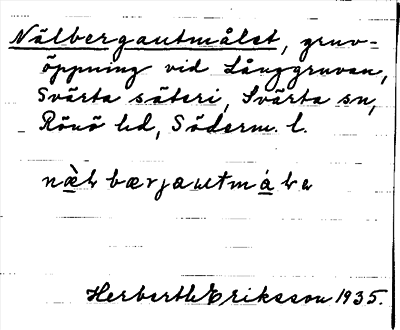 Nälbergautmålet, gruv-
öppning vid Långgruvan,
Svärta säteri, Svärta sn,
Rönö hd, Söderm. l.
Herbert Eriksson 1935.